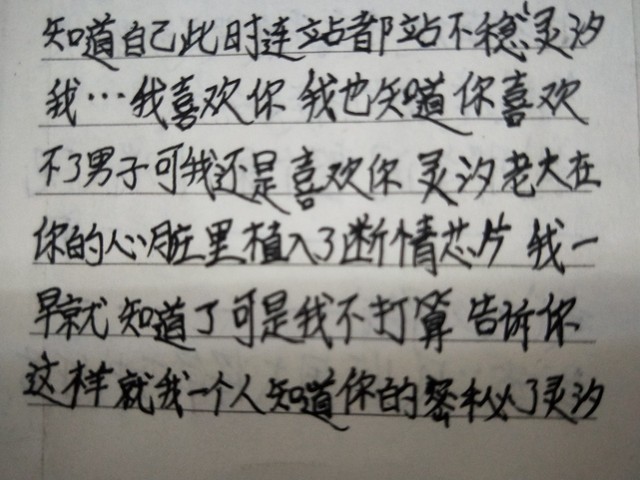 知道自己此时连站都站不稳灵汐
我…我喜欢你 我也知道你喜欢
不了男子可我还是喜欢你 灵汐老大在
你的心脏里植入了断情芯片 我一
早就知道了可是我不打算告诉你
这样就我一个人知道你的密秘了灵汐